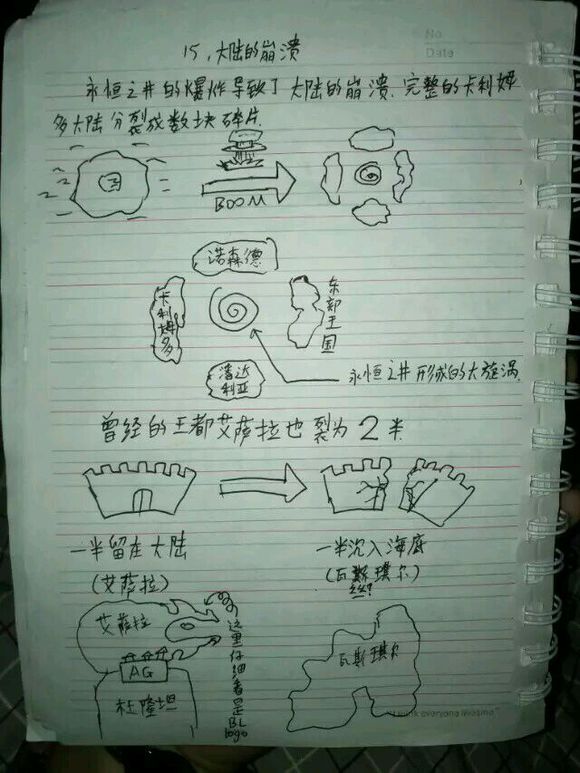 No
Date
15、大陆的崩溃
永恒之井的爆炸导致了大陆的崩溃、完整的卡利姆
多大陆分裂成数块碎片.
BOOM
诺森德
卡利姆多
东部王国
潘达
利亚
永恒之井形成的大旋涡
曾经的王都艾萨拉也裂为2半.
一半留在大陆
(艾萨拉)
一半沉入海底
(瓦斯琪尔)
丝?
艾萨拉
这里仔细看是BL logo
AG
杜隆坦
瓦斯琪尔